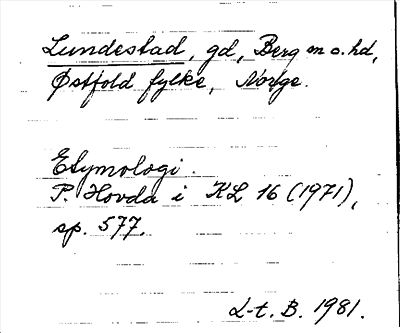 Lundestad, gd, Berg m o. hd,
Østfold fylke, Norge.
Etymologi.
P. Hovda i KL 16 (1971),
sp. 577.
L-t. B. 1981.